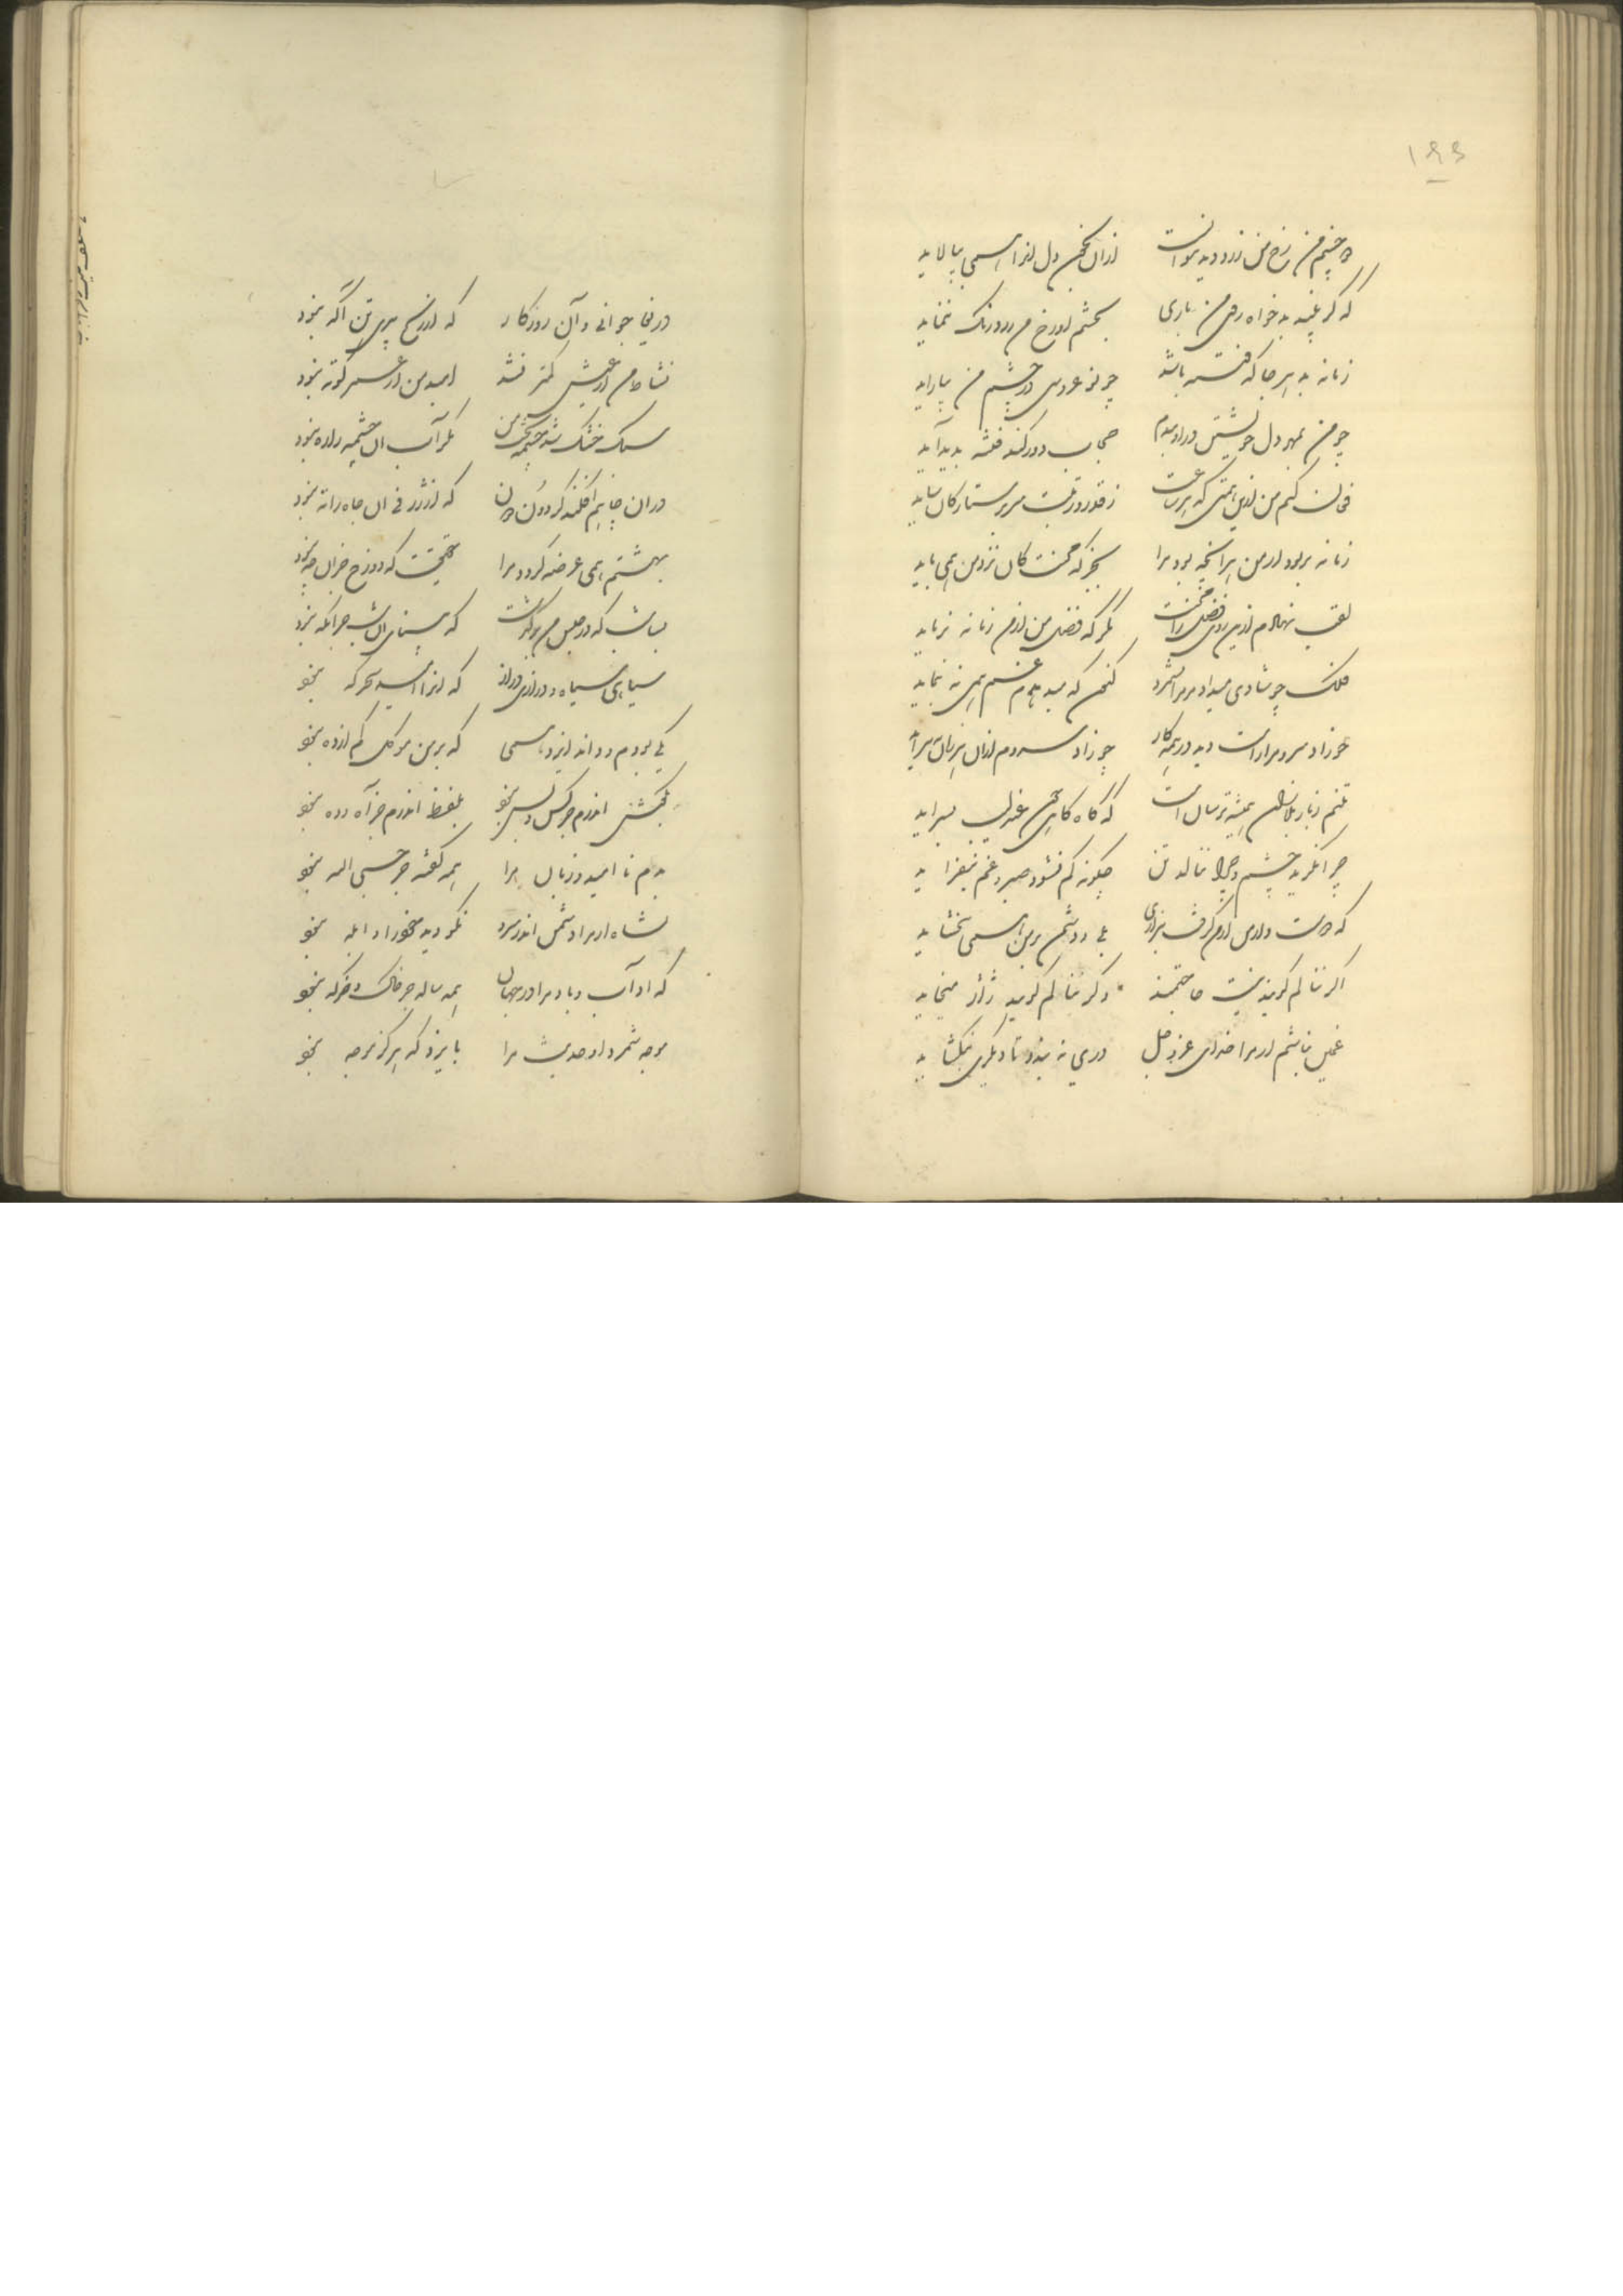 ۱۹۹
دو چشم من رخ من زرد دید نتوانست ازان بخون دل انرا همی بپالاید
که گر ببیند بدخواه روی من باری بچشم او رخ من زرد رنک ننماید
زمانه بد هر جا که فتنه باشد چو نو عروسی در چشم من بیاراید
چو من بمهر دل خویشتن درو بندم حجاب دور کند فتنه پدید آید
فغان کنم من ازین همتی که هر ساعت ز قدر و رتبت سر بر ستارکان ساید
زمانه بربود از من هر آنچه بود مرا بجز که محنت کان نزد من همی پاید
لقب نهادم ازین روی فضل را محنت مکر که فضل من از من زمانه برباید
فلک چو شادی میداد مر مرا بشمرد کنون که میدهدم غم همی نه پیماید
چو زاد سرو مرا راست دید در همه کار چو زاد سروم ازان هر زمان بپیراید
تنم ز بار بلا زان همیشه ترسان است که گاه گاهی چون عندلیب بسراید
چرا نگرید چشم و چرا ننالد تن چگونه کم نشود صبر و غم نیفزاید
که دوست دارم من گرفت بیزاری بلی و دشمن بر من همی ببخشاید
اگر ننالم گویند نیست حاجتمند وگر بنالم گویند ژاژ میخاید
غمین نباشم ازیرا خدای عز و جل دری نه بندد تا دیگری بنگشاید
دریغا جوانی و آن روزکار که از رنج پیری تن آگه نبود
نشاط من از عیش کمتر نشد امید من از عمر کوته نبود
سبک خشک شد چشمه بخت من مکر آب آن چشمه را ره نبود
دران چاهم افکند گردون دون که از ژرفی آن چاه را ته نبود
بهشتم همی عرضه کرد و مرا حقیقت که دوزخ جز آن چه نبود
بسا شب که در حبس بر من گذشت که بینای آن شب جز اکمه نبود
سیاهی سیاه و درازی دراز که انرا امید سحرگه نبود
یکی بودم و داند ایزد همی که بر من موکل کم از ده نبود
بگوش اندرم جز کس و بس نبود بلفظ اندرم جز آه و ده نبود
بدم نا امید و زبان مرا همه گفته جز حسبی الله نبود
بشاه ار مرا دشمن اندر سپرد نکو دید خود را و ابله نبود
که او آب و باد مرا در جهان همه ساله جز خاک و جز که نبود
موجه شمرد او حدیث مرا بایزد که هرگز موجه نبود